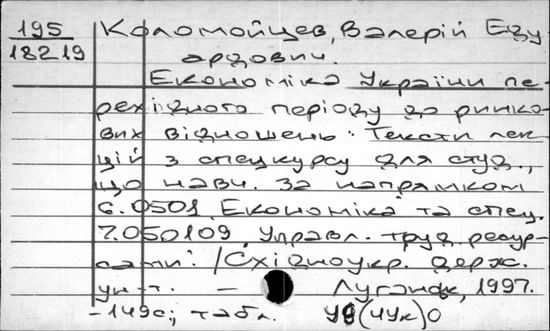 195
18219
Коломойцев, Валерій Еду
ардович.
Економіка України пе-
рехідного періоду до ринко-
вих відношень: Тексти лек-
цій з спецкурсу для студ.,
що навч. за напрямком
6.0501 Економіка та спец.
7.050109 Управл. труд. ресур-
сами. / Східноукр. держ.
ун-т. — Луганськ, 1997.
-149с; табл. У9(4Ук)0